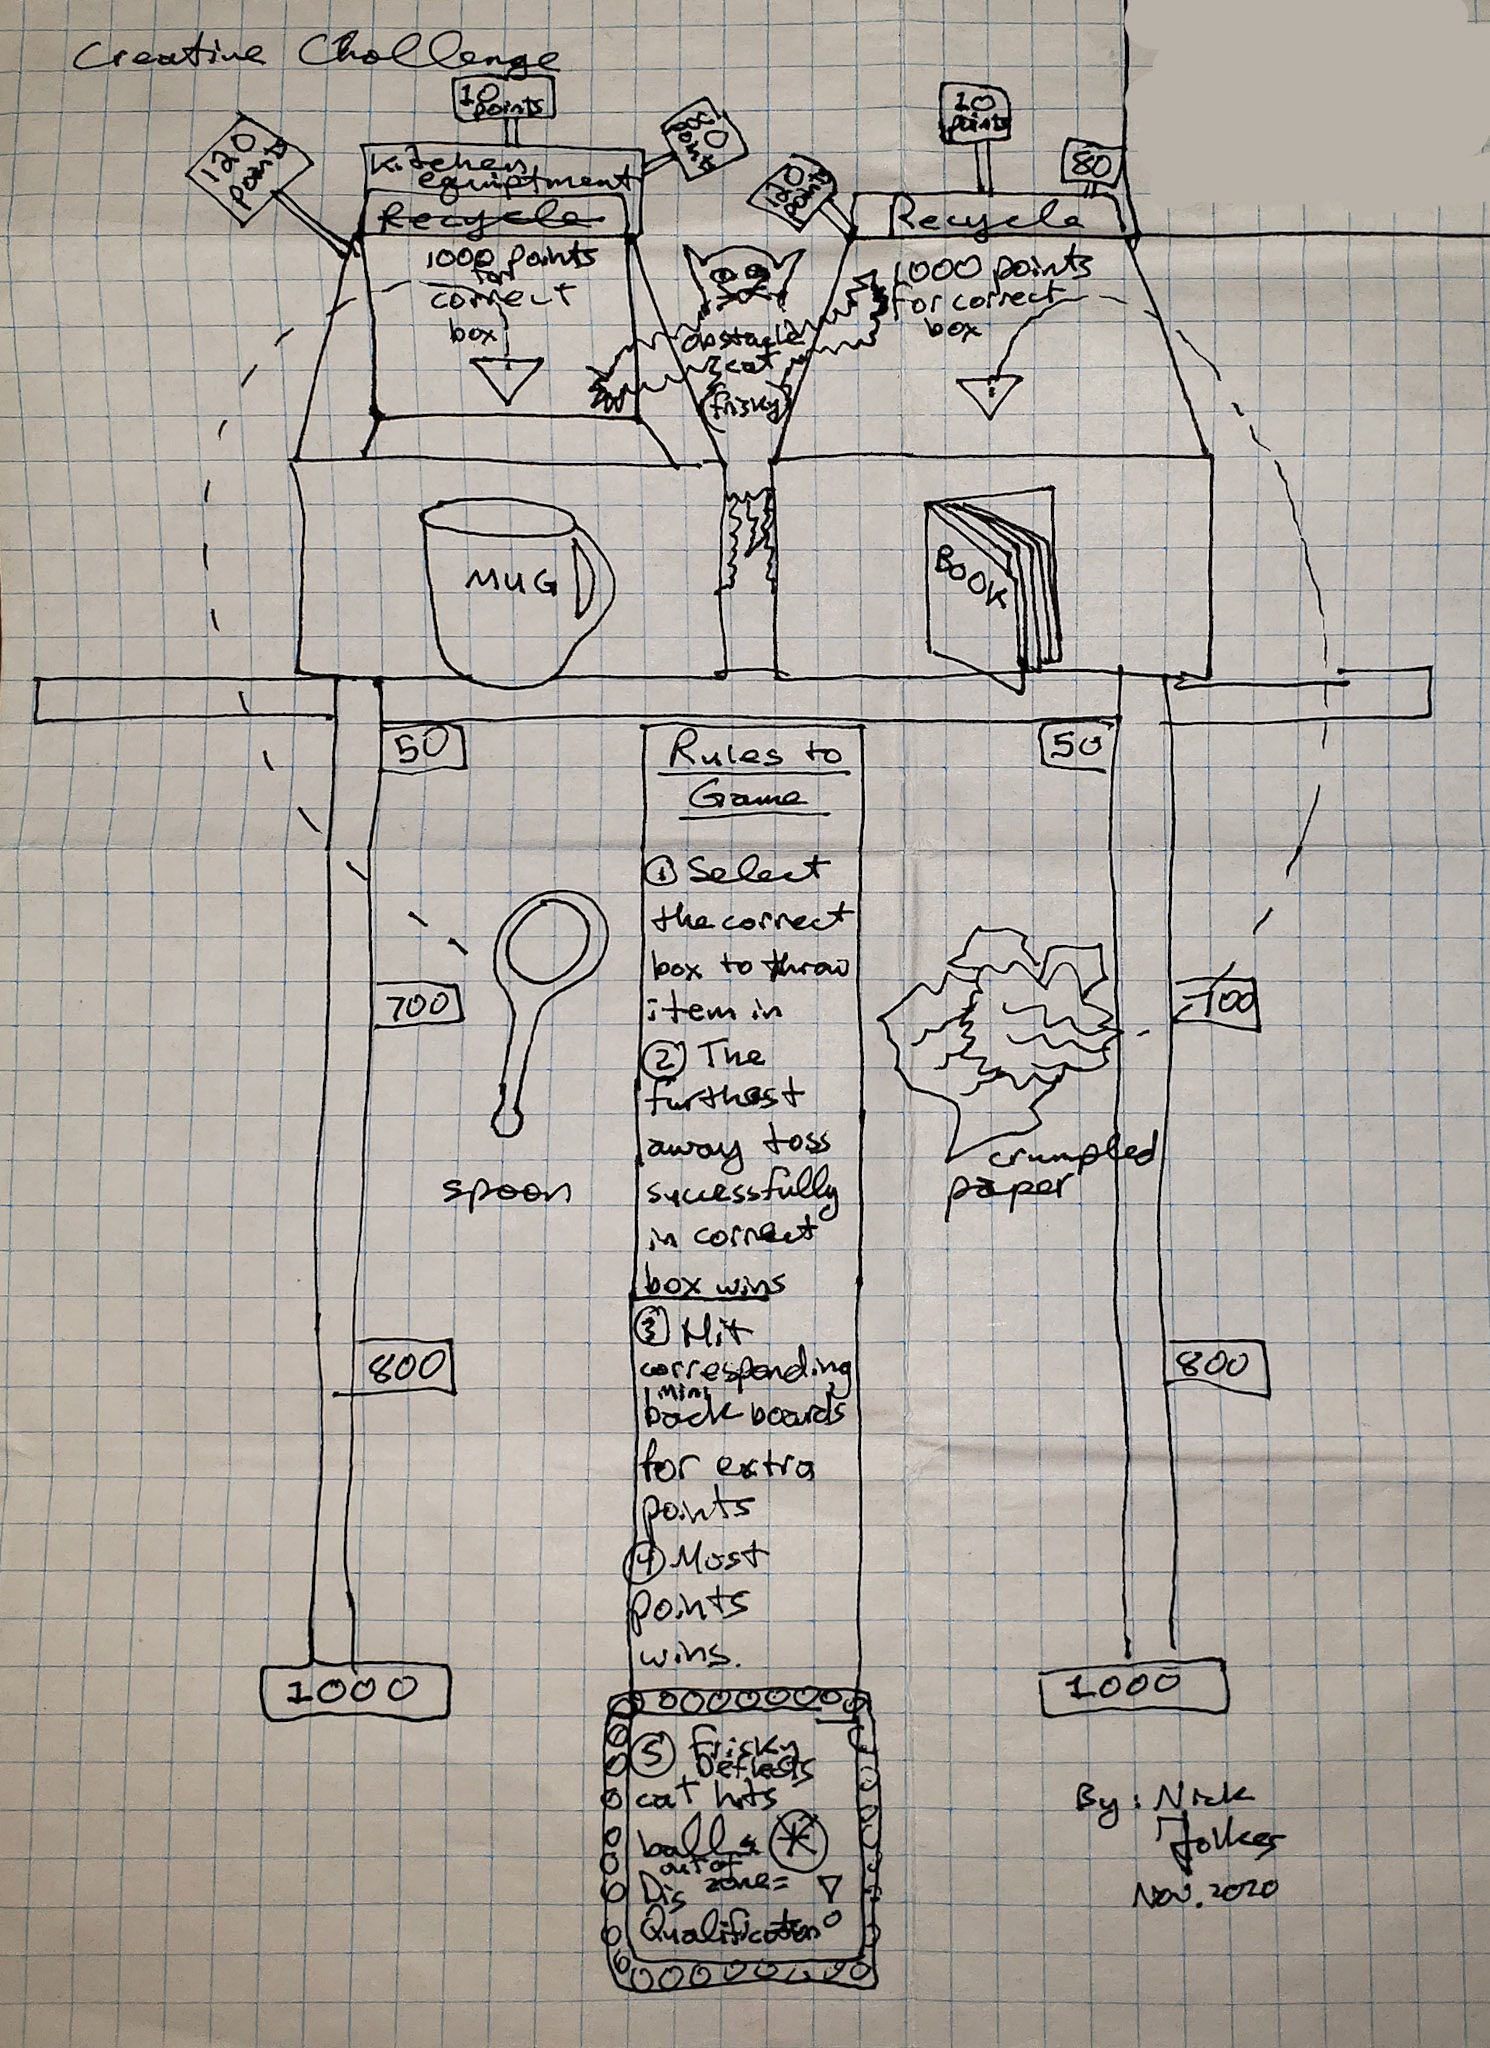 Creative Challenge
10
points
120
points
0
points
Kitchen
equiptment
Recycle
1000 points
for
correct
box
10
points
80
120
points
Recycle
1000 points
for correct
box
obstacle
cat
(frisky)
MUG
BOOK
50
50
Rules to
Game
① Select
the correct
box to throw
item in
② The
furthest
away toss
successfully
in correct
box wins
③ Hit
corresponding
mini
back boards
for extra
points
④ Most
points
wins.
⑤ Frisky
Deflects
cat hits
balls
out of
zone =
Dis
Qualification
700
700
spoon
crumpled
paper
800
800
1000
1000
By: Nick
Nov. 2020